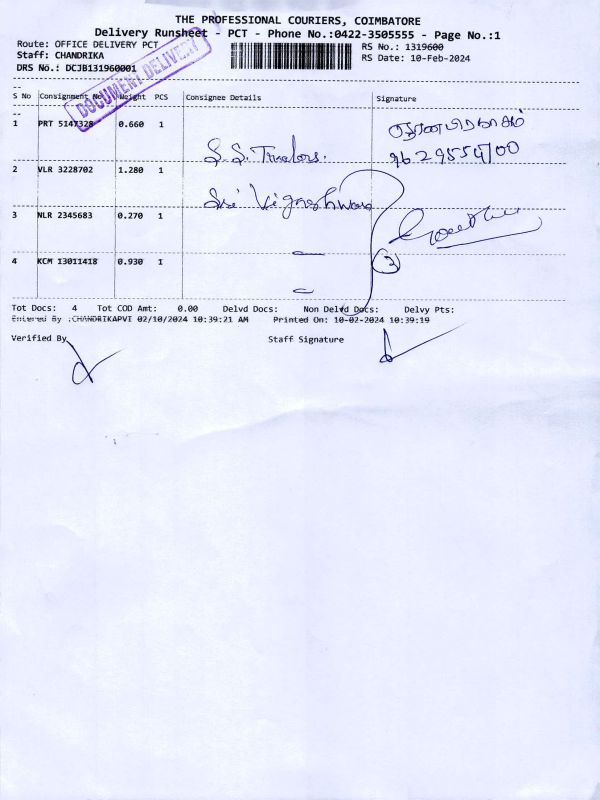 THE PROFESSIONAL COURIERS, COIMBATORE
Delivery Runsheet - PCT - Phone No.:0422-3505555 - Page No.:1
Route: OFFICE DELIVERY PCT
RS No.: 1319600
Staff: CHANDRIKA
RS Date: 10-Feb-2024
DRS No.: DCJB131960001
DOCUMENT DELIVERY
S No Consignment No Weight PCS Consignee Details Signature
1 PRT 5147328 0.660 1
S.S.
9629554700
2 VLR 3228702 1.280 1
Sri Vigneshwara
3 NLR 2345683 0.270 1
3
4 KCM 13011418 0.930 1
Tot Docs: 4 Tot COD Amt: 0.00 Delvd Docs: Non Delvd Docs: Delvy Pts:
Entered By :CHANDRIKAPVI 02/10/2024 10:39:21 AM Printed On: 10-02-2024 10:39:19
Verified By Staff Signature